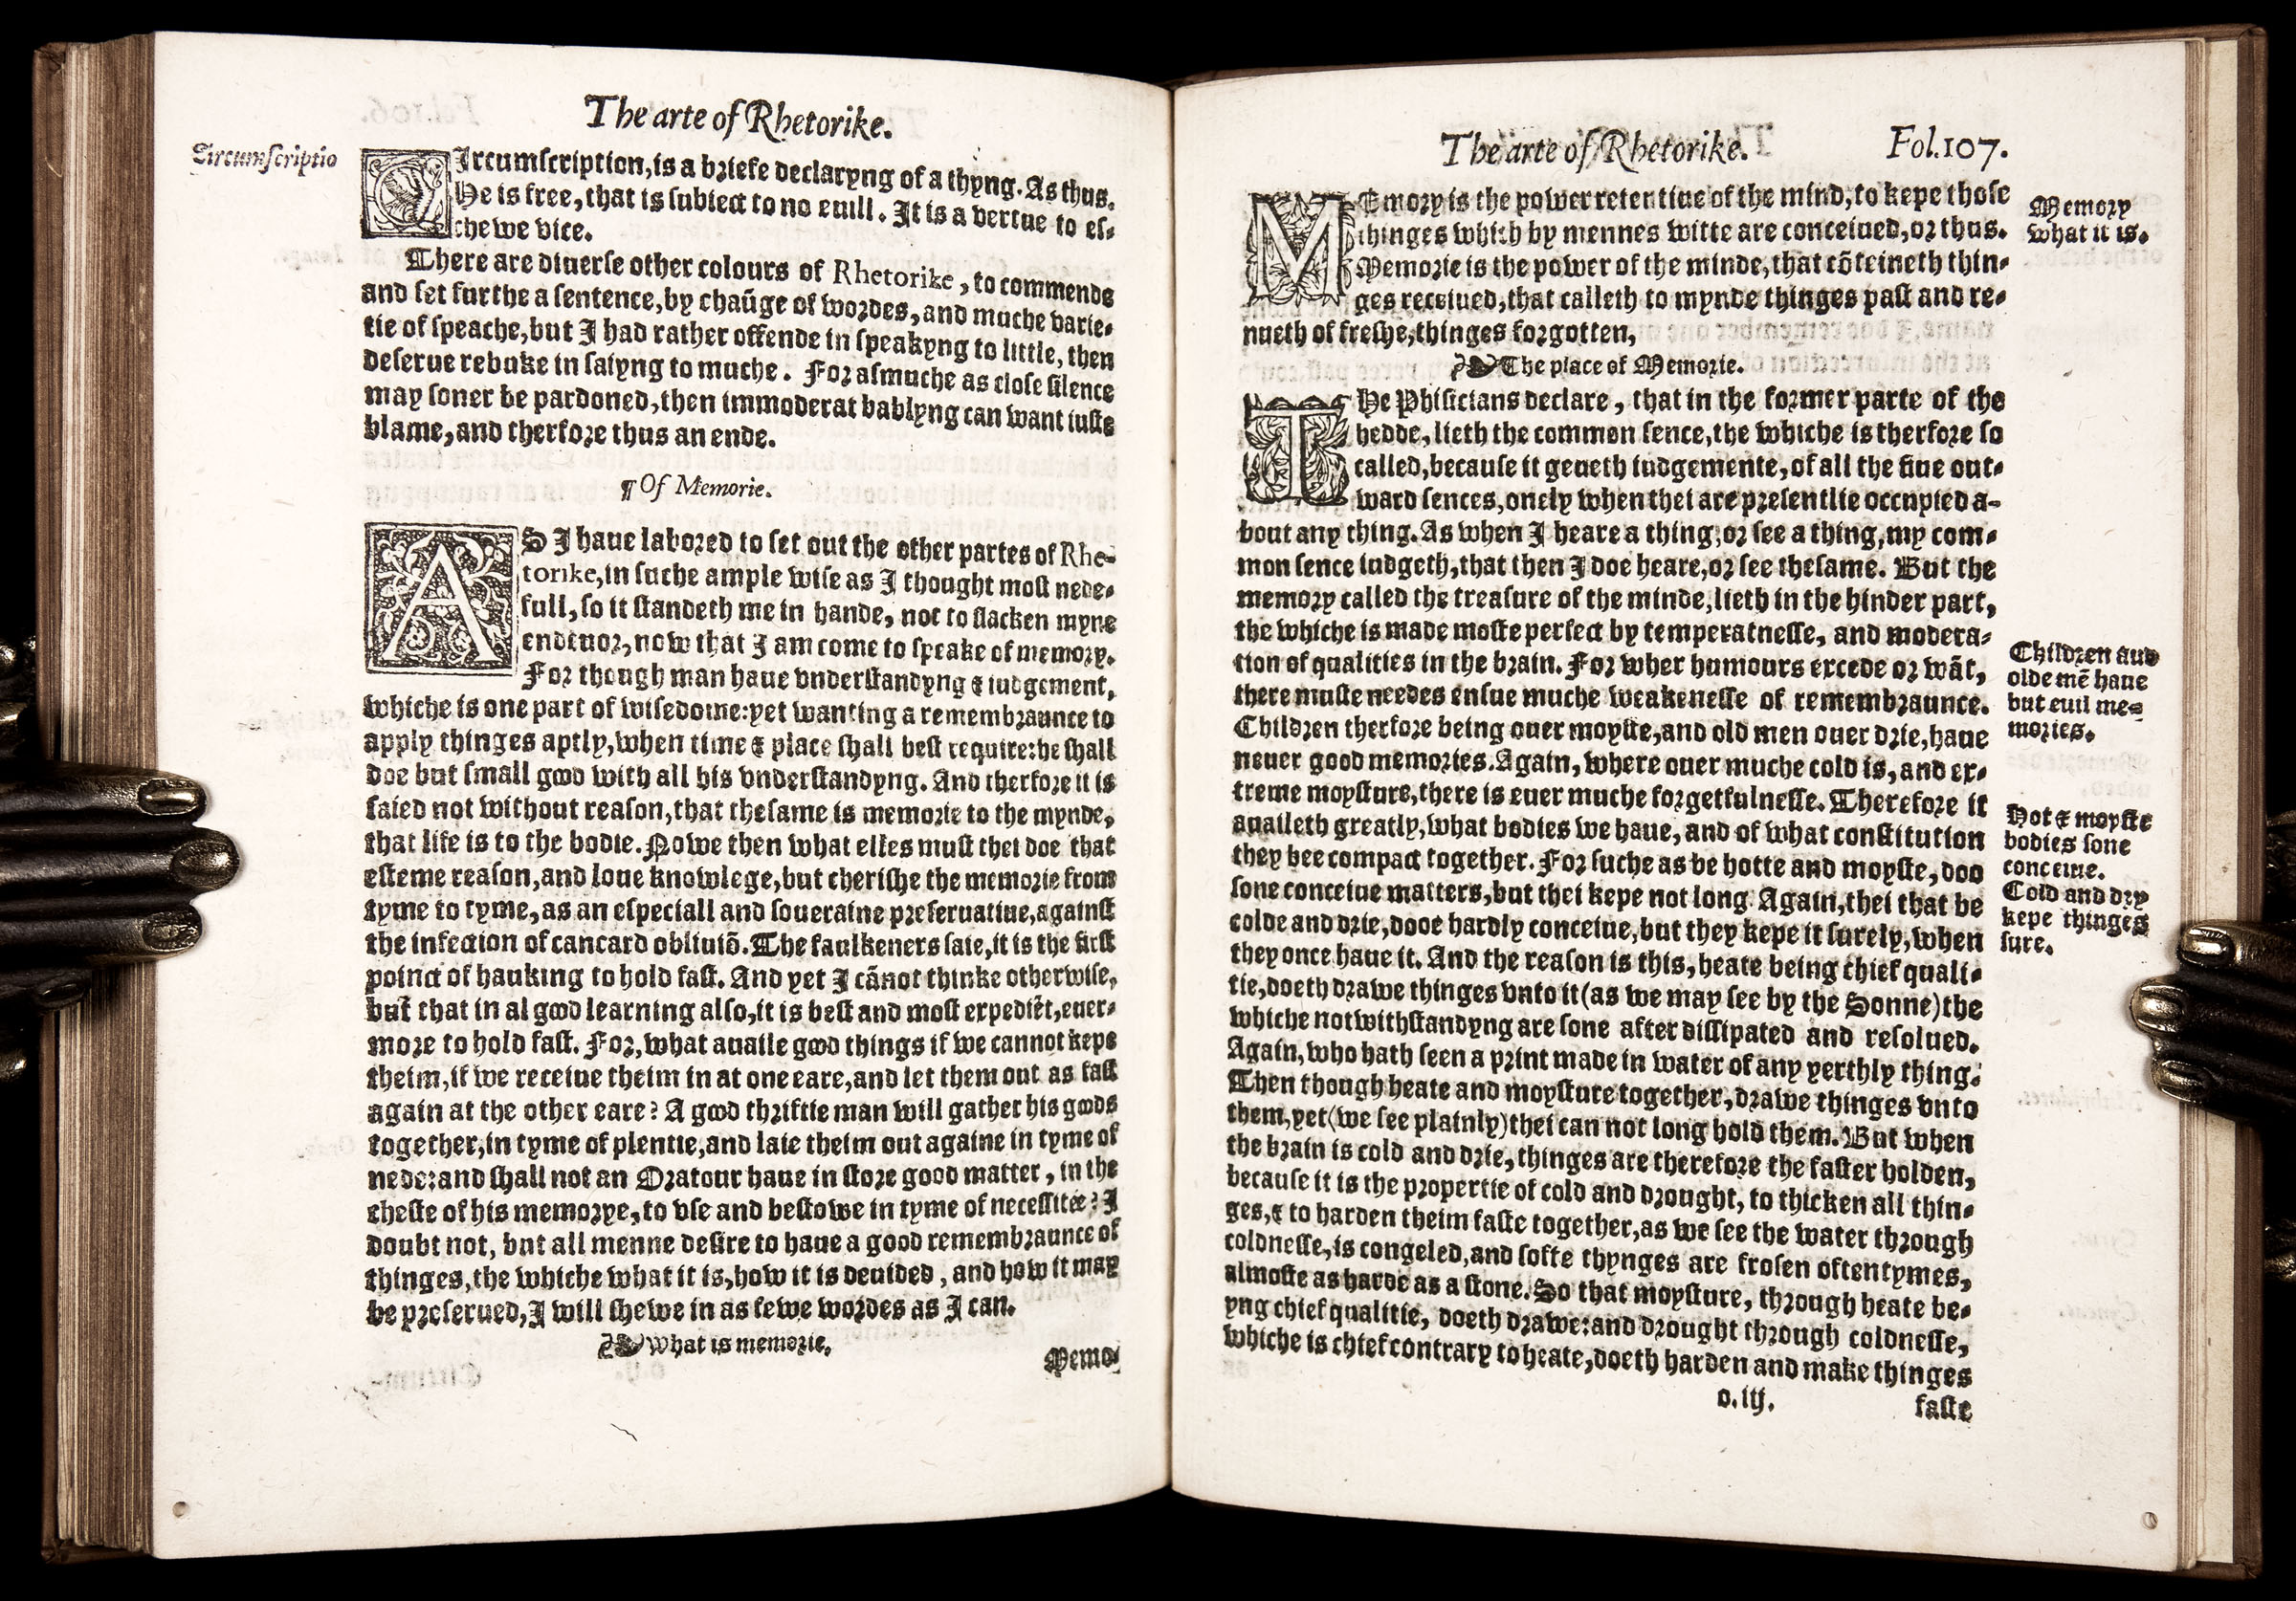 The arte of Rhetorike.
Circumscriptio
CIrcumſcription, is a briefe declaryng of a thyng. As thus.
He is free, that is ſubiect to no euill. It is a vertue to eſ-
chewe vice.
There are diuerſe other colours of Rhetorike, to commende
and ſet furthe a ſentence, by chaũge of wordes, and muche varie-
tie of ſpeache, but I had rather offende in ſpeakyng to little, then
deſerue rebuke in ſaiyng to muche. For aſmuche as cloſe ſilence
may ſoner be pardoned, then immoderat bablyng can want iuſte
blame, and therfore thus an ende.
¶ Of Memorie.
AS I haue labored to ſet out the other partes of Rhe-
torike, in ſuche ample wiſe as I thought moſt nede-
full, ſo it ſtandeth me in hande, not to ſlacken myne
endeuor, now that I am come to ſpeake of memory.
For though man haue vnderſtandyng & iudgement,
whiche is one part of wiſedome: yet wanting a remembraunce to
apply thinges aptly, when time & place ſhall beſt require: he ſhall
doe but ſmall good with all his vnderſtandyng. And therfore it is
ſaied not without reaſon, that theſame is memorie to the mynde,
that life is to the bodie. Nowe then what elles muſt thei doe that
eſteme reaſon, and loue knowlege, but cheriſhe the memorie from
tyme to tyme, as an eſpeciall and ſoueraine preſeruatiue, againſt
the infection of cancard obliuiõ. The faulkeners ſaie, it is the firſt
poinct of hauking to hold faſt. And yet I cãnot thinke otherwiſe,
but that in al good learning alſo, it is beſt and moſt expediẽt, euer-
more to hold faſt. For, what auaile good things if we cannot kepe
theim, if we receiue theim in at one eare, and let them out as faſt
again at the other eare? A good thriftie man will gather his goods
together, in tyme of plentie, and laie theim out againe in tyme of
nede: and ſhall not an Oratour haue in ſtore good matter, in the
cheſte of his memorye, to vſe and beſtowe in tyme of neceſſitée? I
doubt not, but all menne deſire to haue a good remembraunce of
thinges, the whiche what it is, how it is deuided, and how it may
be preſerued, I will ſhewe in as fewe wordes as I can.
What is memorie.
Memo-
The arte of Rhetorike. Fol.107.
MEmory is the power retentiue of the mind, to kepe thoſe
thinges which by mennes witte are conceiued, or thus.
Memorie is the power of the minde, that cõteineth thin-
ges receiued, that calleth to mynde thinges paſt and re-
nueth of freſhe, thinges forgotten,
Memory
what it is.
The place of Memorie.
THe Phiſicians declare, that in the former parte of the
hedde, lieth the common ſence, the whiche is therfore ſo
called, becauſe it geueth iudgemente, of all the fiue out-
ward ſences, onely when thei are preſentlie occupied a-
bout any thing. As when I heare a thing, or ſee a thing, my com-
mon ſence iudgeth, that then I doe heare, or ſee theſame. But the
memory called the treaſure of the minde, lieth in the hinder part,
the whiche is made moſte perfect by temperatneſſe, and modera-
tion of qualities in the brain. For wher humours excede or wãt,
there muſte needes enſue muche weakeneſſe of remembraunce.
Children therfore being ouer moyſte, and old men ouer drie, haue
neuer good memories. Again, where ouer muche cold is, and ex-
treme moyſture, there is euer muche forgetfulneſſe. Therefore it
auaileth greatly, what bodies we haue, and of what conſtitution
they bee compact together. For ſuche as be hotte and moyſte, doo
ſone conceiue matters, but thei kepe not long. Again, thei that be
colde and drie, dooe hardly conceiue, but they kepe it ſurely, when
they once haue it. And the reaſon is this, heate being chief quali-
tie, doeth drawe thinges vnto it (as we may ſee by the Sonne) the
whiche notwithſtandyng are ſone after diſſipated and reſolued.
Again, who hath ſeen a print made in water of any yerthly thing.
Then though heate and moyſture together, drawe thinges vnto
them, yet (we ſee plainly) thei can not long hold them. But when
the brain is cold and drie, thinges are therefore the faſter holden,
becauſe it is the propertie of cold and drought, to thicken all thin-
ges, & to harden theim faſte together, as we ſee the water through
coldneſſe, is congeled, and ſofte thynges are froſen oftentymes,
almoſte as harde as a ſtone. So that moyſture, through heate be-
yng chief qualitie, doeth drawe: and drought through coldneſſe,
whiche is chief contrary to heate, doeth harden and make thinges
Children and
olde mẽ haue
but euil me-
mories.
Hot & moyſte
bodies ſone
conceiue.
Cold and dry
kepe thinges
ſure.
o.iij.
faſte